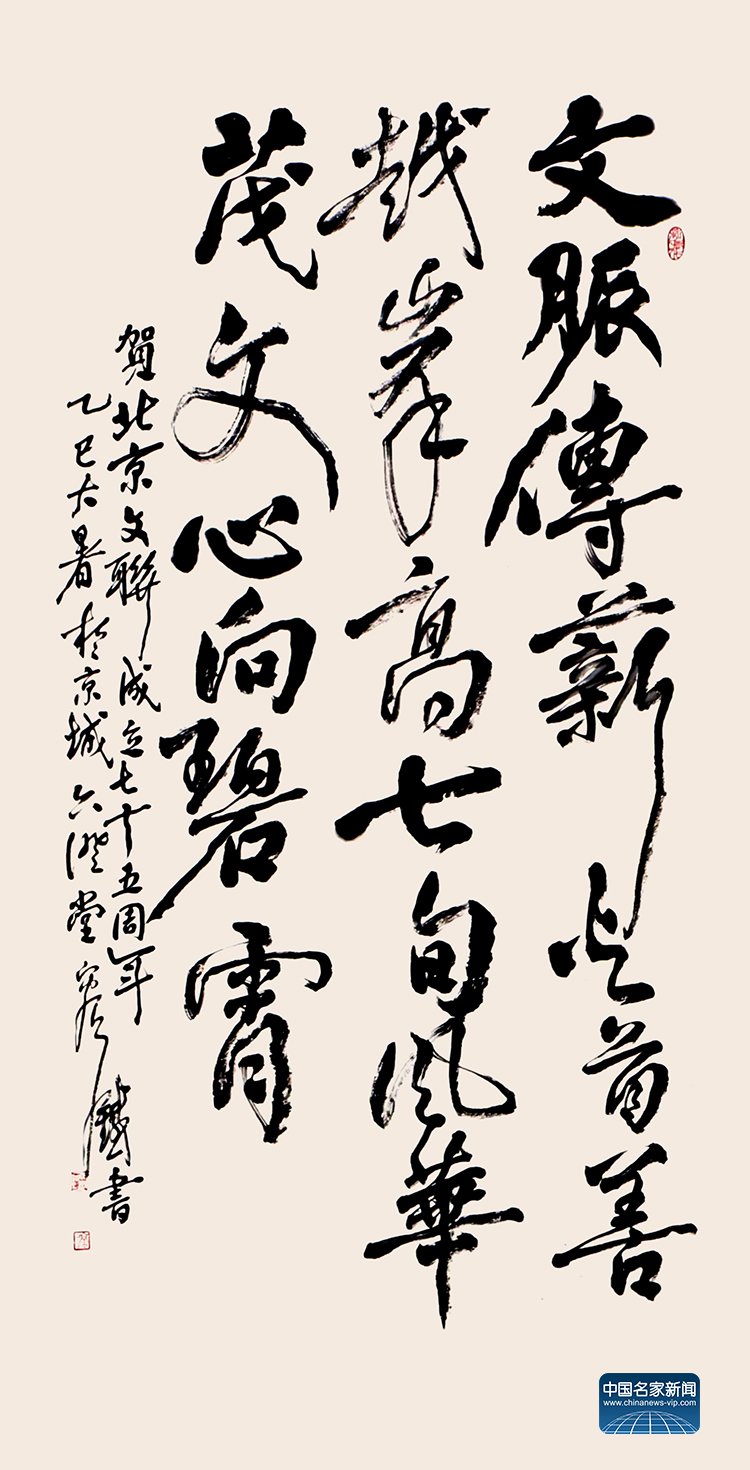 文脈傳薪火首善
越峯高七旬風華
茂文心向碧霄
賀北京文聯成立七十五周年
乙巳大暑於京城六澄堂 鐵書
中国名家新闻
www.chinanews-vip.com